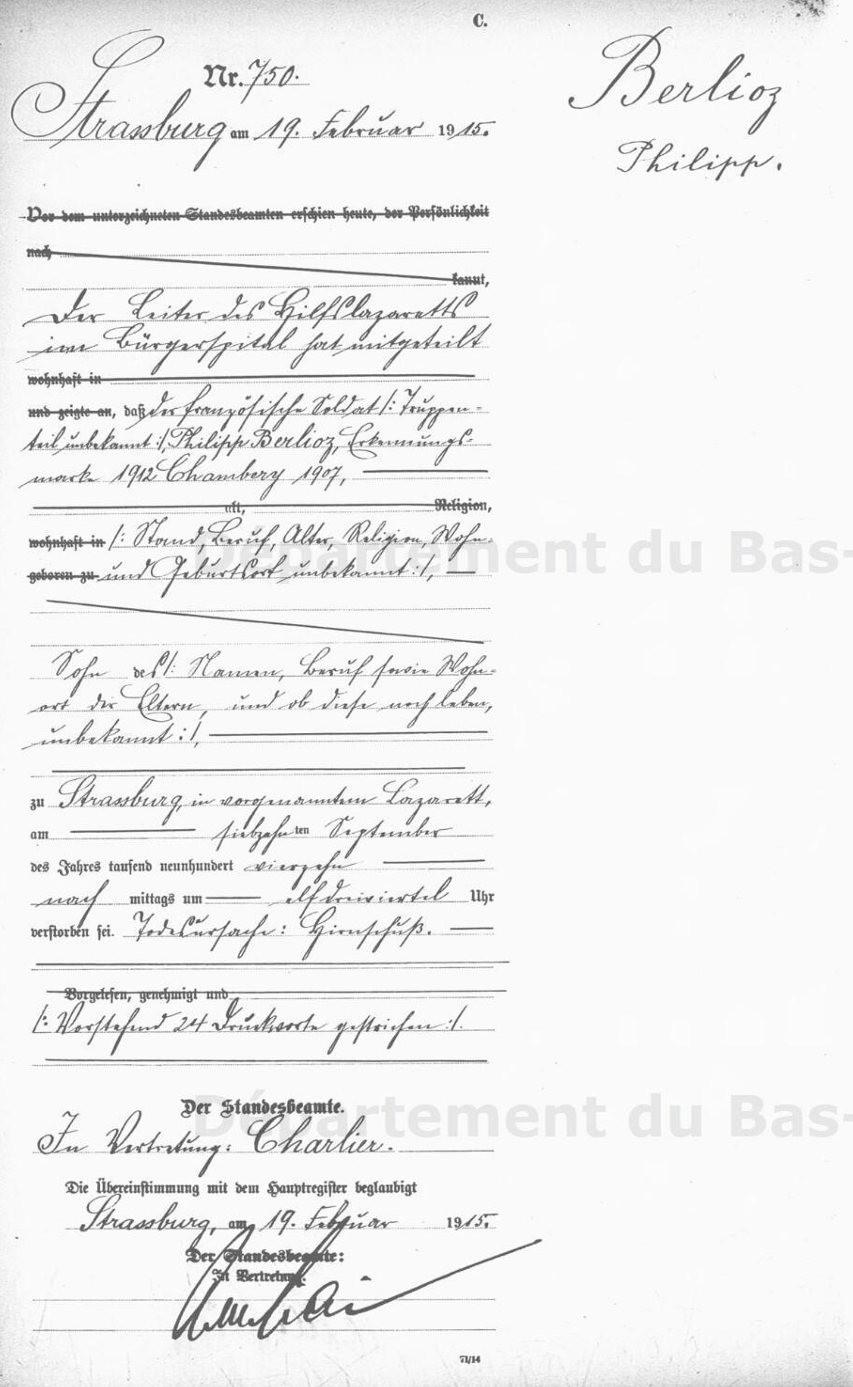 C.
Nr. 750.
Berlioz
Philipp.
Strassburg am 19. Februar 1915.
Vor dem unterzeichneten Standesbeamten erschien heute, der Persönlichkeit
nach
kannt,
Der Leiter des Hilfslazaretts
im Bürgerspital hat mitgeteilt
wohnhaft in
und zeigte an, daß der französische Soldat /: Truppen-
teil unbekannt :/, Philipp Berlioz, Erkennungs-
marke 1912 Chambery 1907,
alt, Religion,
wohnhaft in /: Stand, Beruf, Alter, Religion, Wohn-
geboren zu und Geburtsort unbekannt :/,
Sohn des /: Namen, Beruf sowie Wohn-
ort der Eltern, und ob diese noch leben,
unbekannt :/,
zu Strassburg, in vorgenanntem Lazarett,
am siebzehnten September
des Jahres tausend neunhundert vierzehn
nach mittags um elf dreiviertel Uhr
verstorben sei. Todesursache: Hirnschuß.
Vorgelesen, genehmigt und
/: Vorstehend 24 Druckworte gestrichen :/.
Der Standesbeamte.
In Vertretung: Charlier.
Die Übereinstimmung mit dem Hauptregister beglaubigt
Strassburg, am 19. Februar 1915.
Der Standesbeamte:
In Vertretung:
71/14
Département du Bas-
Département du Bas-